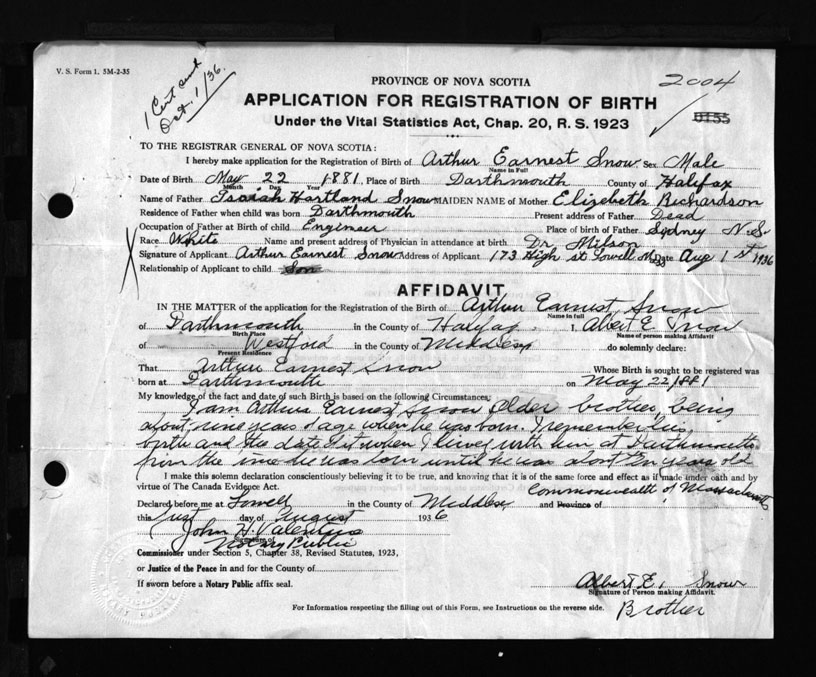 V. S. Form 1. 5M-2-35
1 Cert sent
Oct. 1/36.
2004
PROVINCE OF NOVA SCOTIA
APPLICATION FOR REGISTRATION OF BIRTH
Under the Vital Statistics Act, Chap. 20, R. S. 1923
TO THE REGISTRAR GENERAL OF NOVA SCOTIA:
I hereby make application for the Registration of Birth of Arthur Earnest Snow Sex Male
Name in Full
Date of Birth May 22 1881, Place of Birth Darthmouth County of Halifax
Month Day Year
Name of Father Isaiah Hartland Snow MAIDEN NAME of Mother Elizebeth Richardson
Residence of Father when child was born Darthmouth Present address of Father Dead
Occupation of Father at Birth of child Engineer Place of birth of Father Sydney N.S
Race White Name and present address of Physician in attendance at birth Dr Milson
Signature of Applicant Arthur Earnest Snow Address of Applicant 173 High st Lowell Date Aug 1st 1936
Relationship of Applicant to child Son
AFFIDAVIT
IN THE MATTER of the application for the Registration of the Birth of Arthur Earnest Snow
Name in full
of Darthmouth in the County of Halifax. I, Albert E. Snow
Birth Place Name of person making Affidavit
of Westford in the County of Middlesex do solemnly declare:
Present Residence
That Arthur Earnest Snow Whose Birth is sought to be registered was
born at Darthmouth on May 22/1881
My knowledge of the fact and date of such Birth is based on the following Circumstances:
I am Arthur Earnest Snow Older brother, being
about nine years of age when he was born. I remember his
birth and the date of it when I lived with him at Darthmouth
from the time he was born until he was about ten years old
I make this solemn declaration conscientiously believing it to be true, and knowing that it is of the same force and effect as if made under oath and by
virtue of The Canada Evidence Act.
Commonwealth of Massachusetts
Declared before me at Lowell in the County of Middlesex and Province of
this first day of August 1936
John H. Valentine
Signature of
Notary Public
Commissioner under Section 5, Chapter 38, Revised Statutes, 1923,
or Justice of the Peace in and for the County of
If sworn before a Notary Public affix seal.
Albert E. Snow
Signature of Person making Affidavit.
For Information respecting the filling out of this Form, see Instructions on the reverse side.
Brother